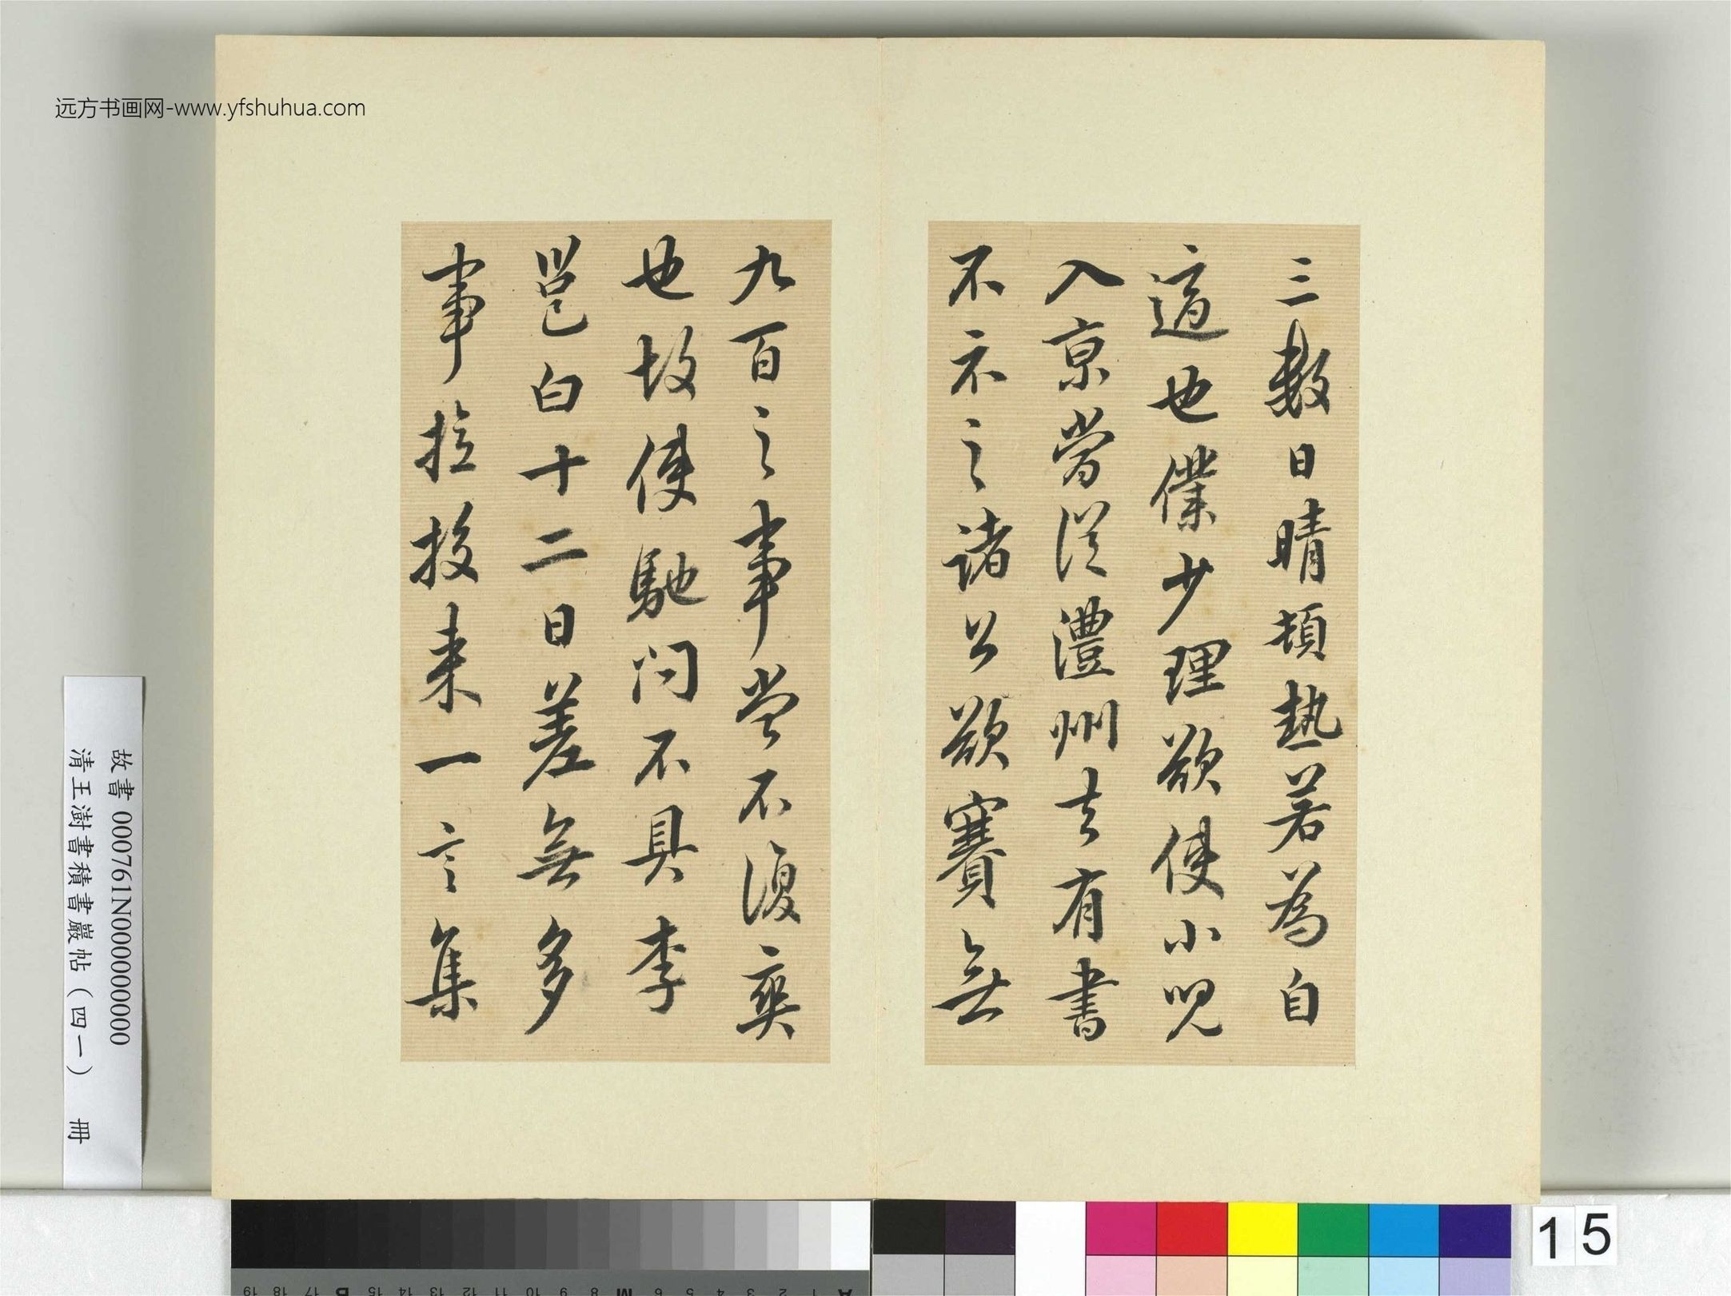 远方书画网-www.yfshuhua.com
三數日晴頓熱若為自
適也僕少理欲使小兒
入京常從澧州去有書
不示之諸公欲賽無
九百之事當不復爽
也故使馳問不具李
邕白十二日差無多
事撿挍来一言集
故書000761N000000000
清王澍書積書巖帖(四一) 冊
15